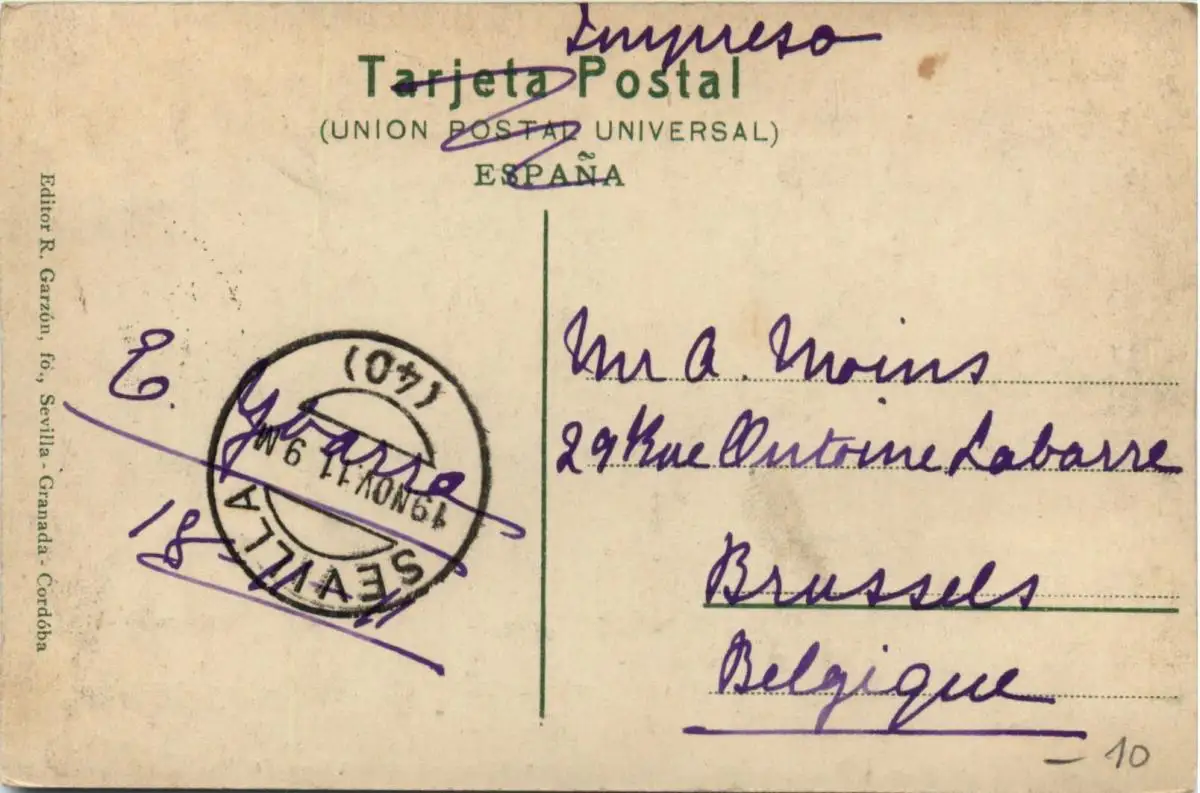 Impreso
Tarjeta Postal
(UNION POSTAL UNIVERSAL)
ESPAÑA
Editor R. Garzón, fó., Sevilla - Granada - Cordóba
E. Ybarra
18 - 11
(40)
19 NOV.11 9M
SEVILLA
Mr A. Moins
29 Rue Antoine Labarre
Brussels
Belgique
- 10